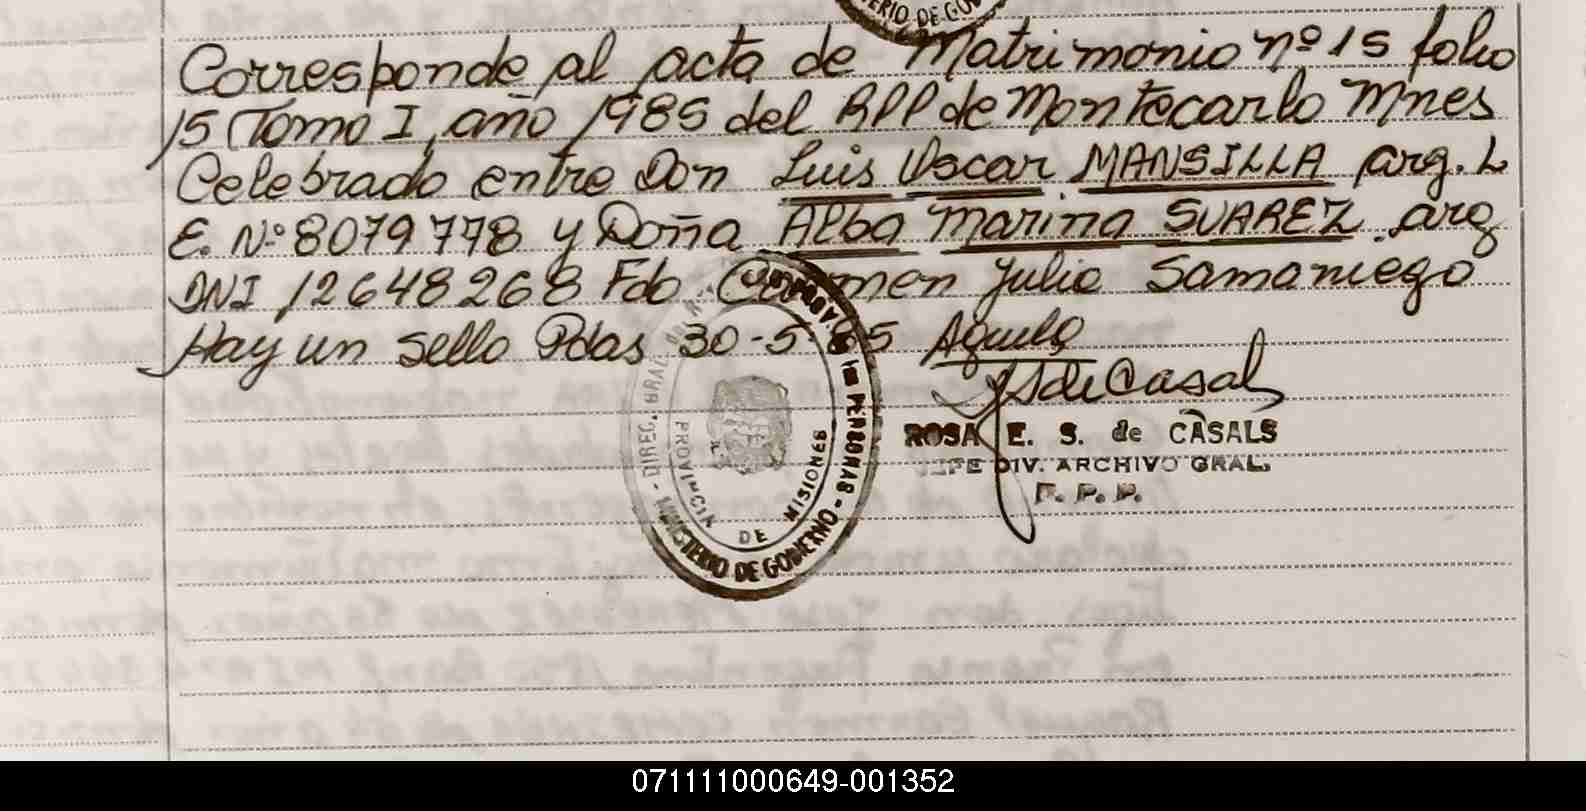 MINISTERIO DE GOBIERNO
Corresponde al acta de Matrimonio nº 15 folio
15 Tomo I, año 1985 del RPP de Montecarlo Mnes
Celebrado entre Don Luis Oscar MANSILLA arg. L
E. Nº 8079778 y Doña Alba Marina SUAREZ arg
DNI 12648268 Fdo Carmen Julio Samaniego
Hay un sello Pdas 30-5-85
PROVINCIA DE MISIONES
MINISTERIO DE GOBIERNO - DIREC. GRAL. PERSONAS
ROSA E. S. de CASALS
JEFE DIV. ARCHIVO GRAL.
071111000649-001352